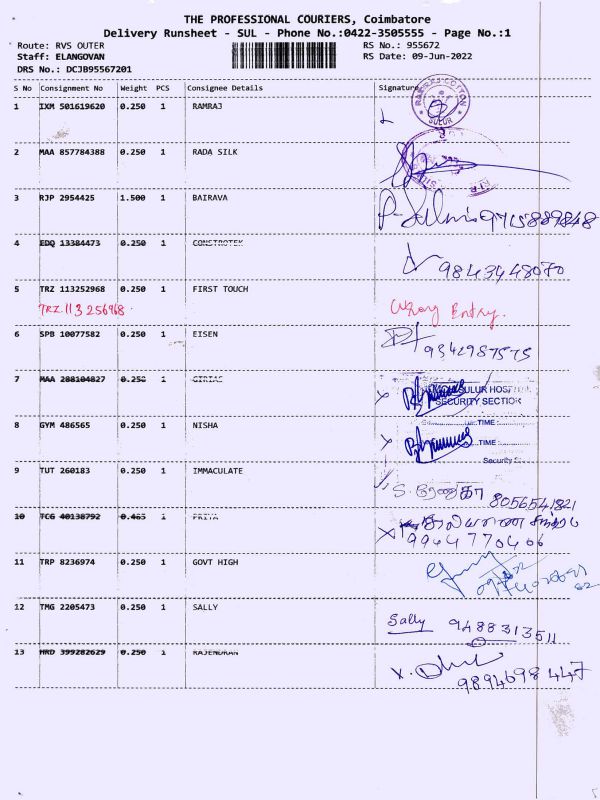 THE PROFESSIONAL COURIERS, Coimbatore
Delivery Runsheet - SUL - Phone No.:0422-3505555 - Page No.:1
Route: RVS OUTER RS No.: 955672
Staff: ELANGOVAN RS Date: 09-Jun-2022
DRS No.: DCJB95567201
S No Consignment No Weight PCS Consignee Details Signature
RAMRAJ COTTON
SULUR
1 IXM 501619620 0.250 1 RAMRAJ
2 MAA 857784388 0.250 1 RADA SILK
3 RJP 2954425 1.500 1 BAIRAVA
9715889848
4 EDQ 13384473 0.250 1 CONSTROTEK
9843448070
5 TRZ 113252968 0.250 1 FIRST TOUCH
TRZ.113 256968. Wrong Entry.
6 SPB 10077582 0.250 1 EISEN
9342987575
7 MAA 288104827 0.250 1 GIRIAS
SULUR
SECURITY SECTION
TIME:
8 GYM 486565 0.250 1 NISHA
TIME:
Security
9 TUT 260183 0.250 1 IMMACULATE
S. ரேணுகா 8056541821
10 TCG 40138792 0.465 1 PRIYA
9944770406
11 TRP 8236974 0.250 1 GOVT HIGH
12 TMG 2205473 0.250 1 SALLY
Sally 9488313511
13 HRD 399282629 0.250 1 RAJENDRAN
9894698447